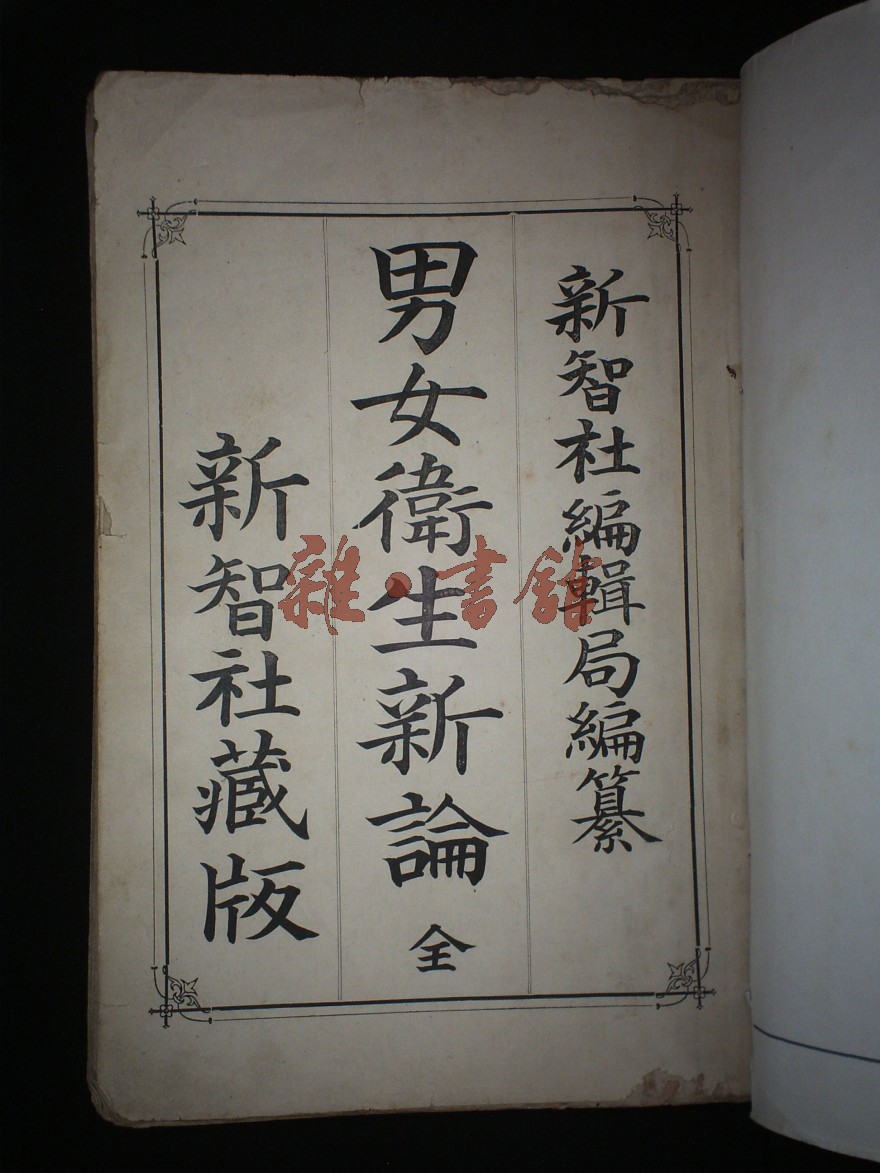 新智社編輯局編纂
男女衛生新論 全
新智社藏版
雜·書館